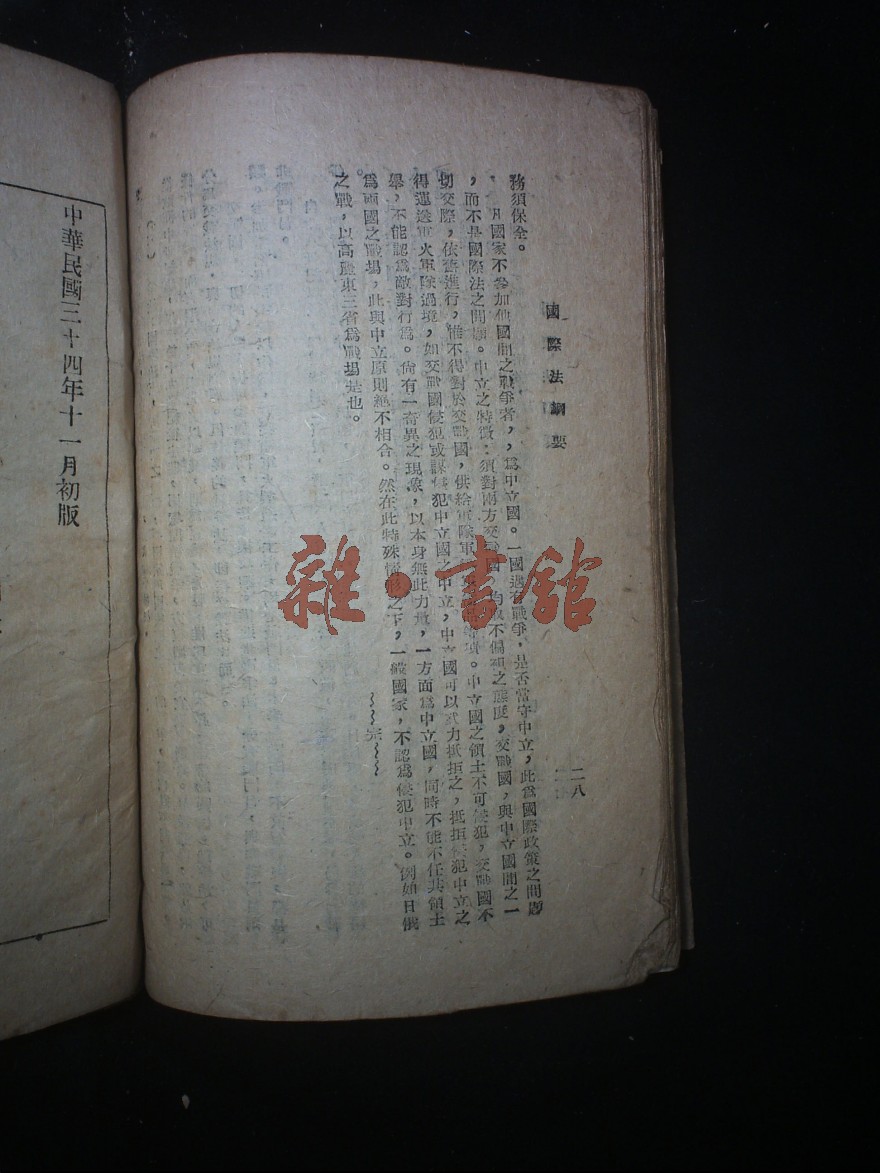 國際法綱要
二八
務須保全。
凡國家不參加他國間之戰爭者,,為中立國。一國遇有戰爭,是否當守中立,此為國際政策之問題
,而不是國際法之問題。中立之特徵:須對兩方交戰國,均取不偏袒之態度,交戰國,與中立國間之一
切交際,依舊進行,惟不得對於交戰國,供給軍隊軍。中立國之領土不可侵犯,交戰國不
得運送軍火軍隊過境,如交戰國侵犯或謀侵犯中立國之中立,中立國可以武力抵拒之,抵拒侵犯中立之
舉,不能認為敵對行為。尚有一奇異之現象,以本身無此力量,一方面為中立國,同時不能不任其領土
為兩國之戰場,此與中立原則絕不相合。然在此特殊情形之下,一般國家,不認為侵犯中立。例如日俄
之戰,以高麗東三省為戰場是也。
~~完~~
中華民國三十四年十一月初版
雜·書館